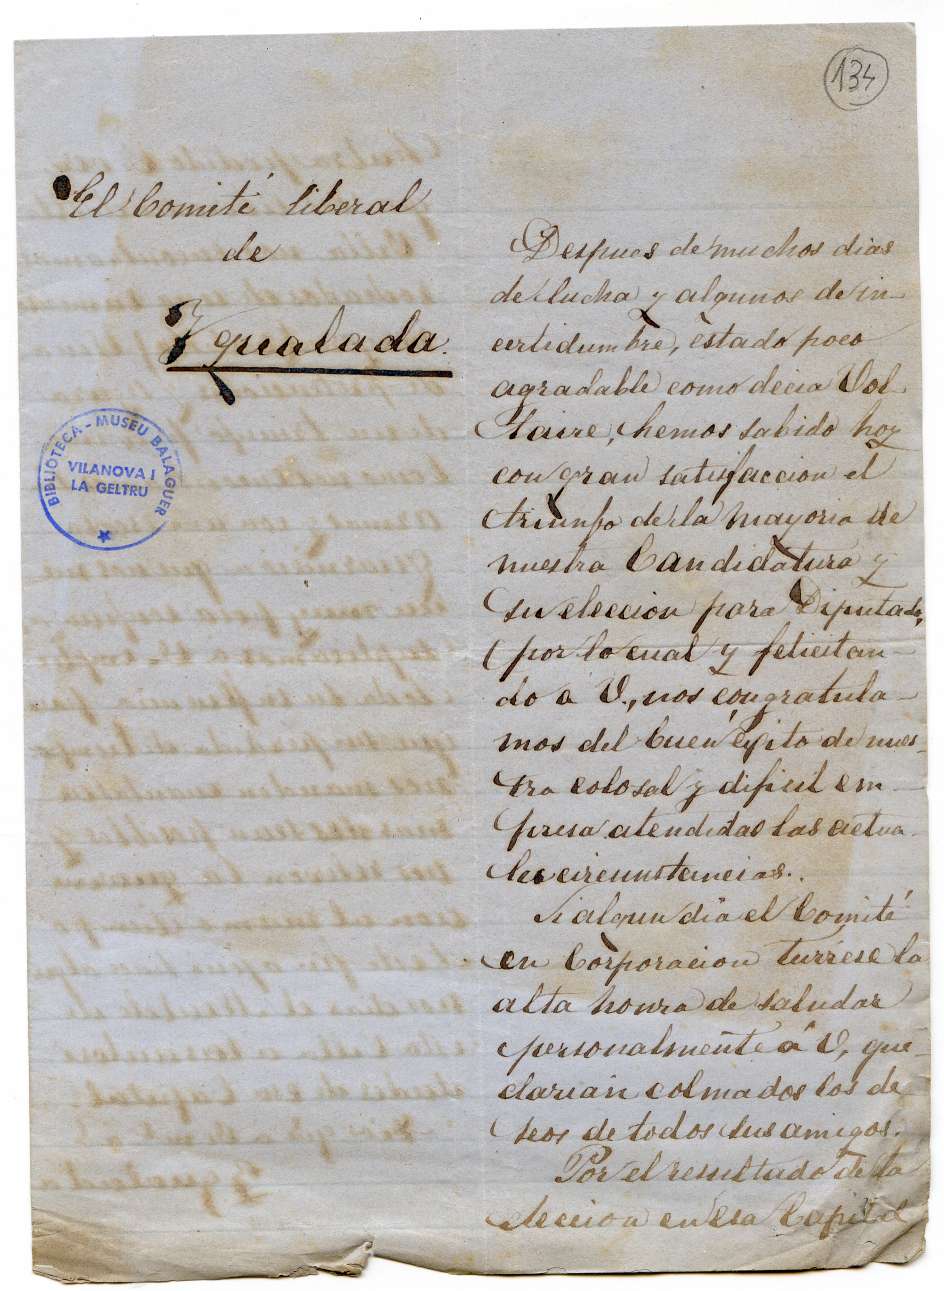 134
El Comité liberal
de
Ygualada.
BIBLIOTECA - MUSEU BALAGUER
VILANOVA I
LA GELTRU
Despues de muchos dias
de lucha y algunos de in-
certidumbre, estado poco
agradable como decia Vol
taire, hemos sabido hoy
con gran satisfaccion el
triunfo de la mayoria de
nuestra Candidatura y
su eleccion para Diputado,
por lo cual y felicitan-
do a V., nos congratula-
mos del buen ecsito de nues-
tra colosal y dificil em-
presa atendidas las actua-
les circunstancias.
Si algun dia el Comité
en Corporacion tuviese la
alta honra de saludar
personalmente á V, que-
darian colmados los de-
seos de todos sus amigos.
Por el resultado de la
eleccion en esa Capital